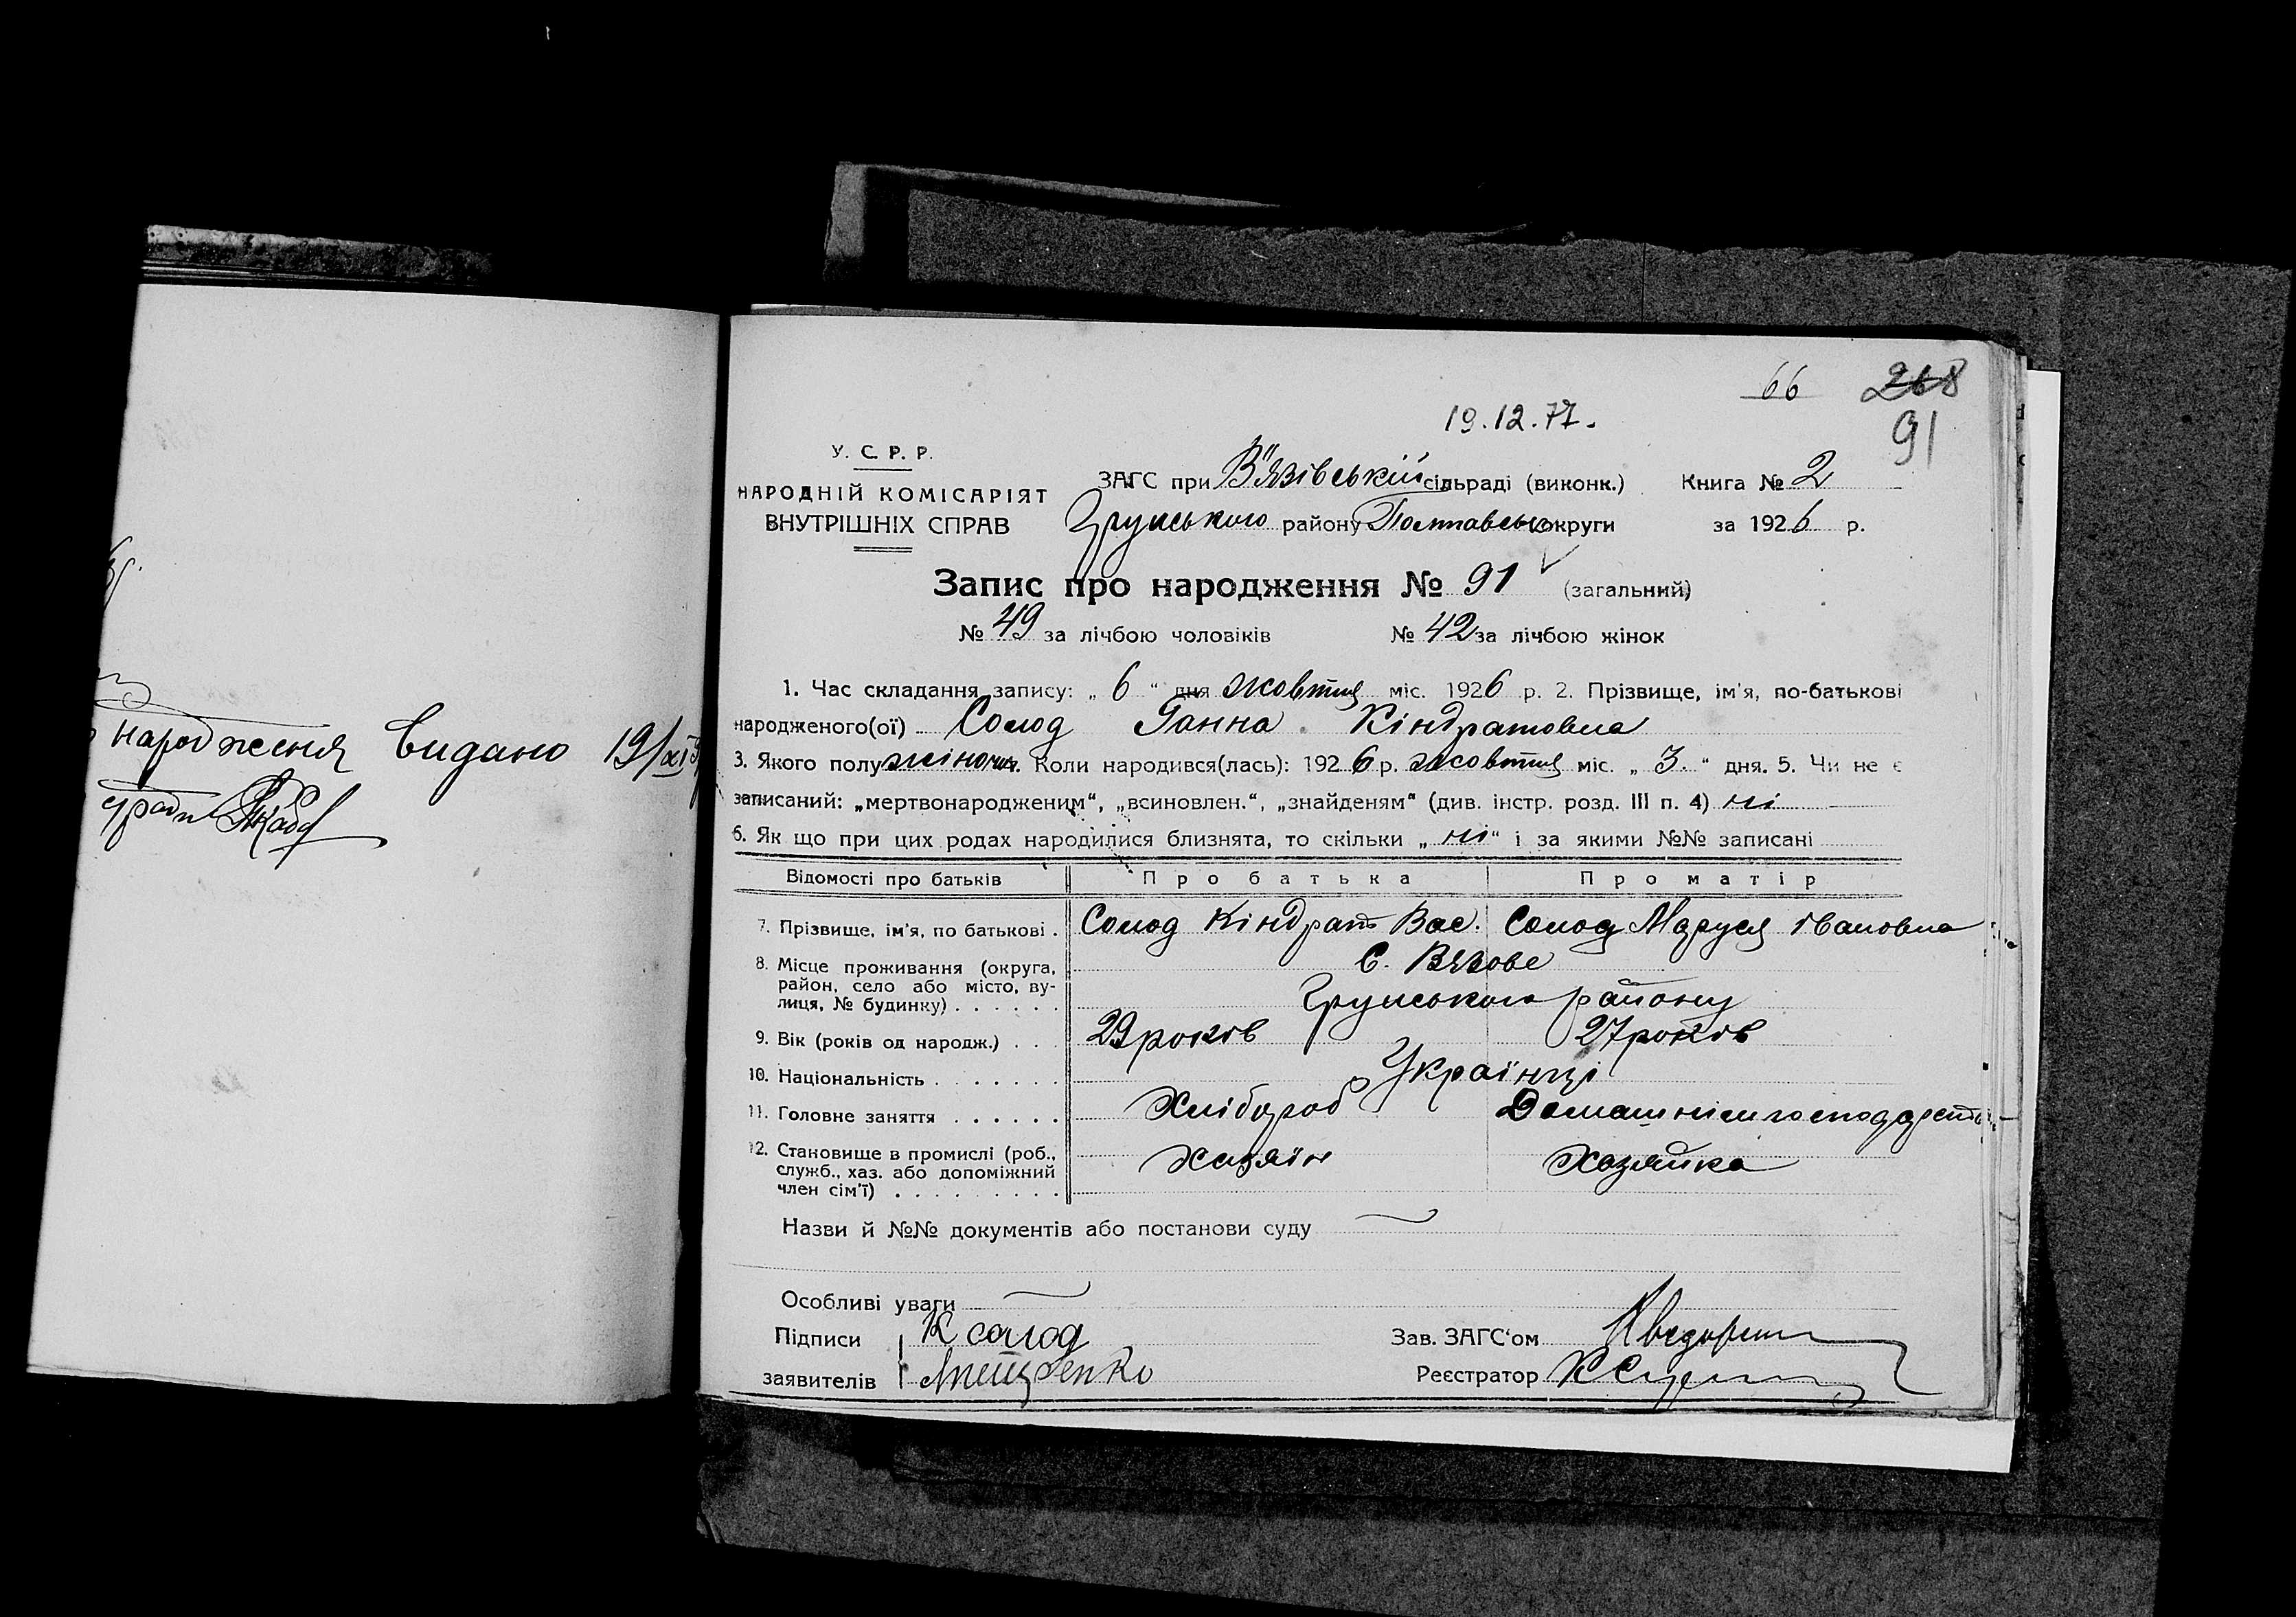 народження видано 19/XI
66 268
19.12.77.
91
У. С. Р. Р.
НАРОДНІЙ КОМІСАРІЯТ
ВНУТРІШНІХ СПРАВ
ЗАГС при В"язівській сільраді (виконк.) Книга № 2
Грунського району Полтавсько округи за 1926 р.
Запис про народження № 91 (загальний)
№ 49 за лічбою чоловіків № 42 за лічбою жінок
1. Час складання запису: „ 6 “ дня жовтня міс. 1926 р. 2. Прізвище, ім'я, по-батькові
народженого(ої) Солод Ганна Кіндратовна
3. Якого полу жіночи. Коли народився(лась): 1926 р. жовтня міс. „ 3. “ дня. 5. Чи не є
записаний: „мертвонародженим“, „всиновлен.“, „знайденям“ (див. інстр. розд. III п. 4) ні
6. Як що при цих родах народилися близнята, то скільки „ ні “ і за якими №№ записані
Відомості про батьків Про батька Про матір
7. Прізвище, ім'я, по батькові . Солод Кіндрат Вас. Солод Маруся Івановна
8. Місце проживання (округа, район, село або місто, вулиця, № будинку) . . . . . . С. Вязове
Грунського району
9. Вік (років од народж.) . . . 29 років 27 років
10. Національність . . . . . . . Українці
11. Головне заняття . . . . . . Хлібороб Домашнім господарств
12. Становище в промислі (роб., служб., хаз. або допоміжний член сім'ї) . . . . . . . . . Хазяїн Хозяйка
Назви й №№ документів або постанови суду
Особливі уваги
Підписи К солод Зав. ЗАГС'ом
заявителів Реєстратор